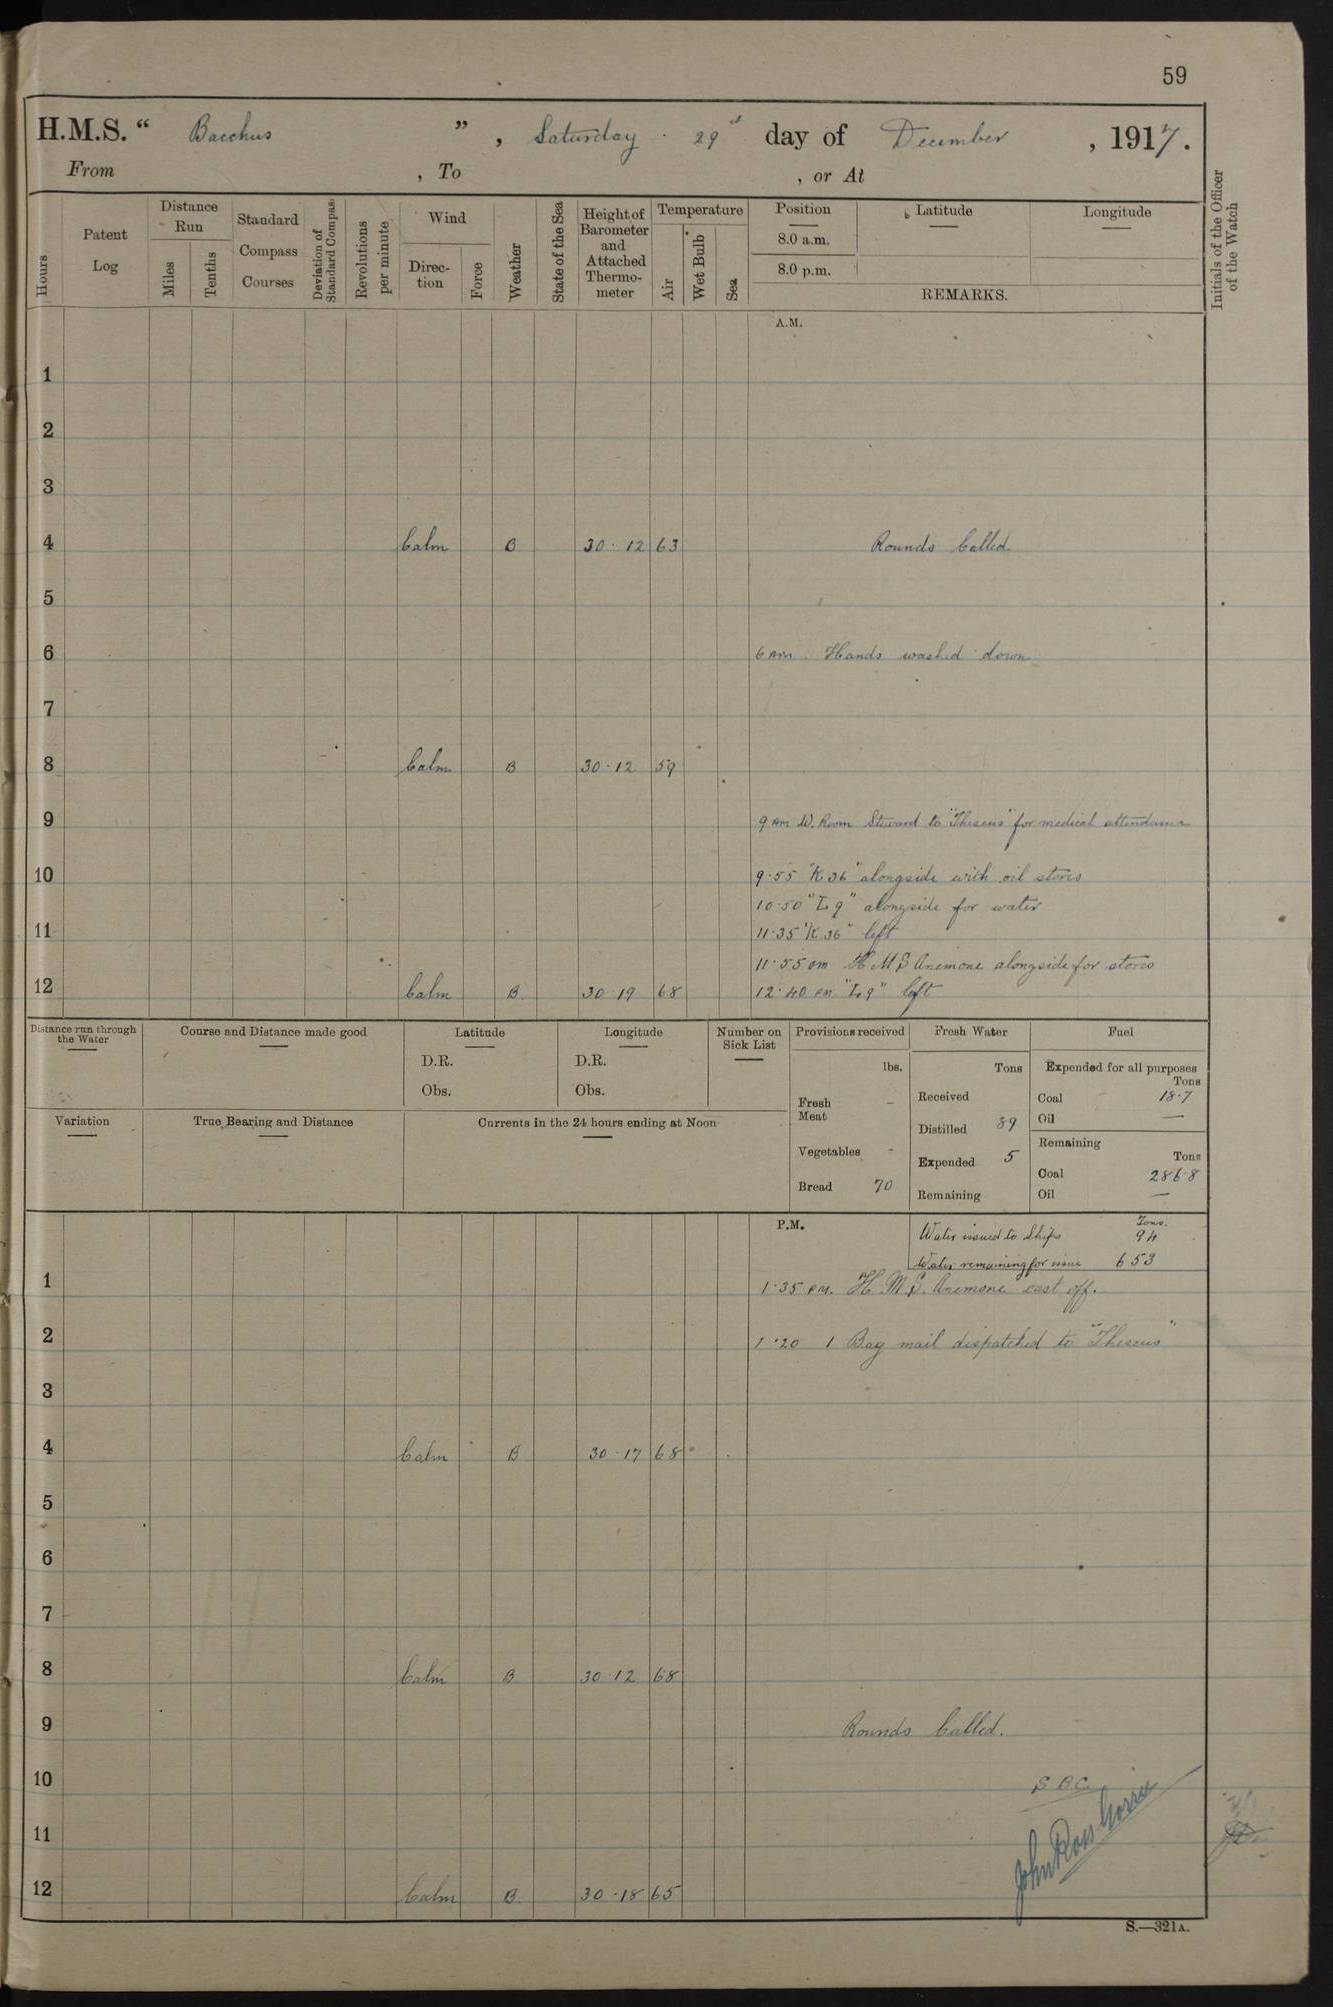 59
H.M.S. “ Bacchus ” , Saturday 29th day of December , 1917.
From , To , or At
Hours
Patent Log
Distance Run
Miles
Tenths
Standard Compass Courses
Deviation of Standard Compass
Revolutions per minute
Wind
Direction
Force
Weather
State of the Sea
Height of Barometer and Attached Thermometer
Temperature
Air
Wet Bulb
Sea
Position Latitude Longitude
8.0 a.m.
8.0 p.m.
REMARKS.
Initials of the Officer of the Watch
A.M.
1
2
3
4 Calm B 30·12 63 Rounds Called.
5
6 6 AM. Hands washed down
7
8 Calm B 30·12 59
9 9 AM W. Room Steward to "Theseus" for medical attendance
10 9·55 "K 36" alongside with oil stores
10·50 "L 9" alongside for water
11 11·35 "K 36" left
11·55 am H M S Anemone alongside for stores
12 Calm B 30·19 68 12·40 PM "L 9" left
Distance run through the Water
Course and Distance made good
Latitude
D.R.
Obs.
Longitude
D.R.
Obs.
Number on Sick List
Provisions received
lbs.
Fresh Meat -
Vegetables -
Bread 70
Fresh Water
Tons
Received
Distilled 89
Expended 5
Remaining
Fuel
Expended for all purposes
Tons
Coal 18·7
Oil —
Remaining
Tons
Coal 286·8
Oil —
Variation
True Bearing and Distance
Currents in the 24 hours ending at Noon
P.M.
Tons.
Water issued to Ships 94
Water remaining for issue 653
1 1·35 PM. H.M.S. Anemone cast off.
2 1·20 1 Bag mail dispatched to "Theseus"
3
4 Calm B 30·17 68
5
6
7
8 Calm B 30·12 68
9 Rounds Called.
10 S B C
11 John Ross
12 Calm B 30·18 65
S.—321A.